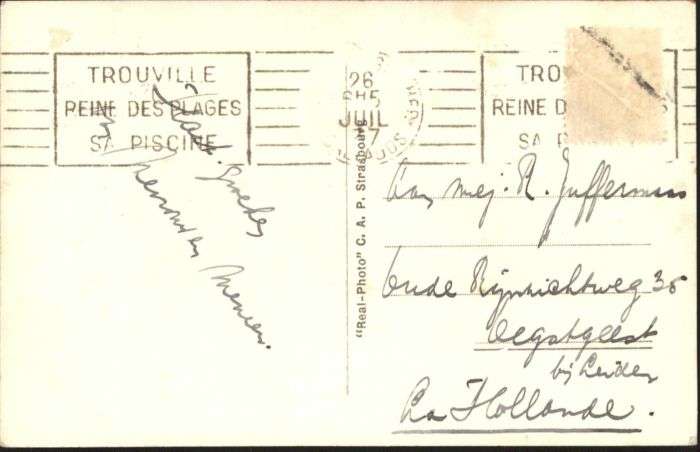 TROUVILLE
REINE DES PLAGES
SA PISCINE
26
JUIL
TRO
REINE D
SA P
"Real-Photo" C. A. P. Strasbourg
Aan mej. R. Juffermans
Oude Rijnzichtweg 35
Oegstgeest
bij Leiden
La Hollande.